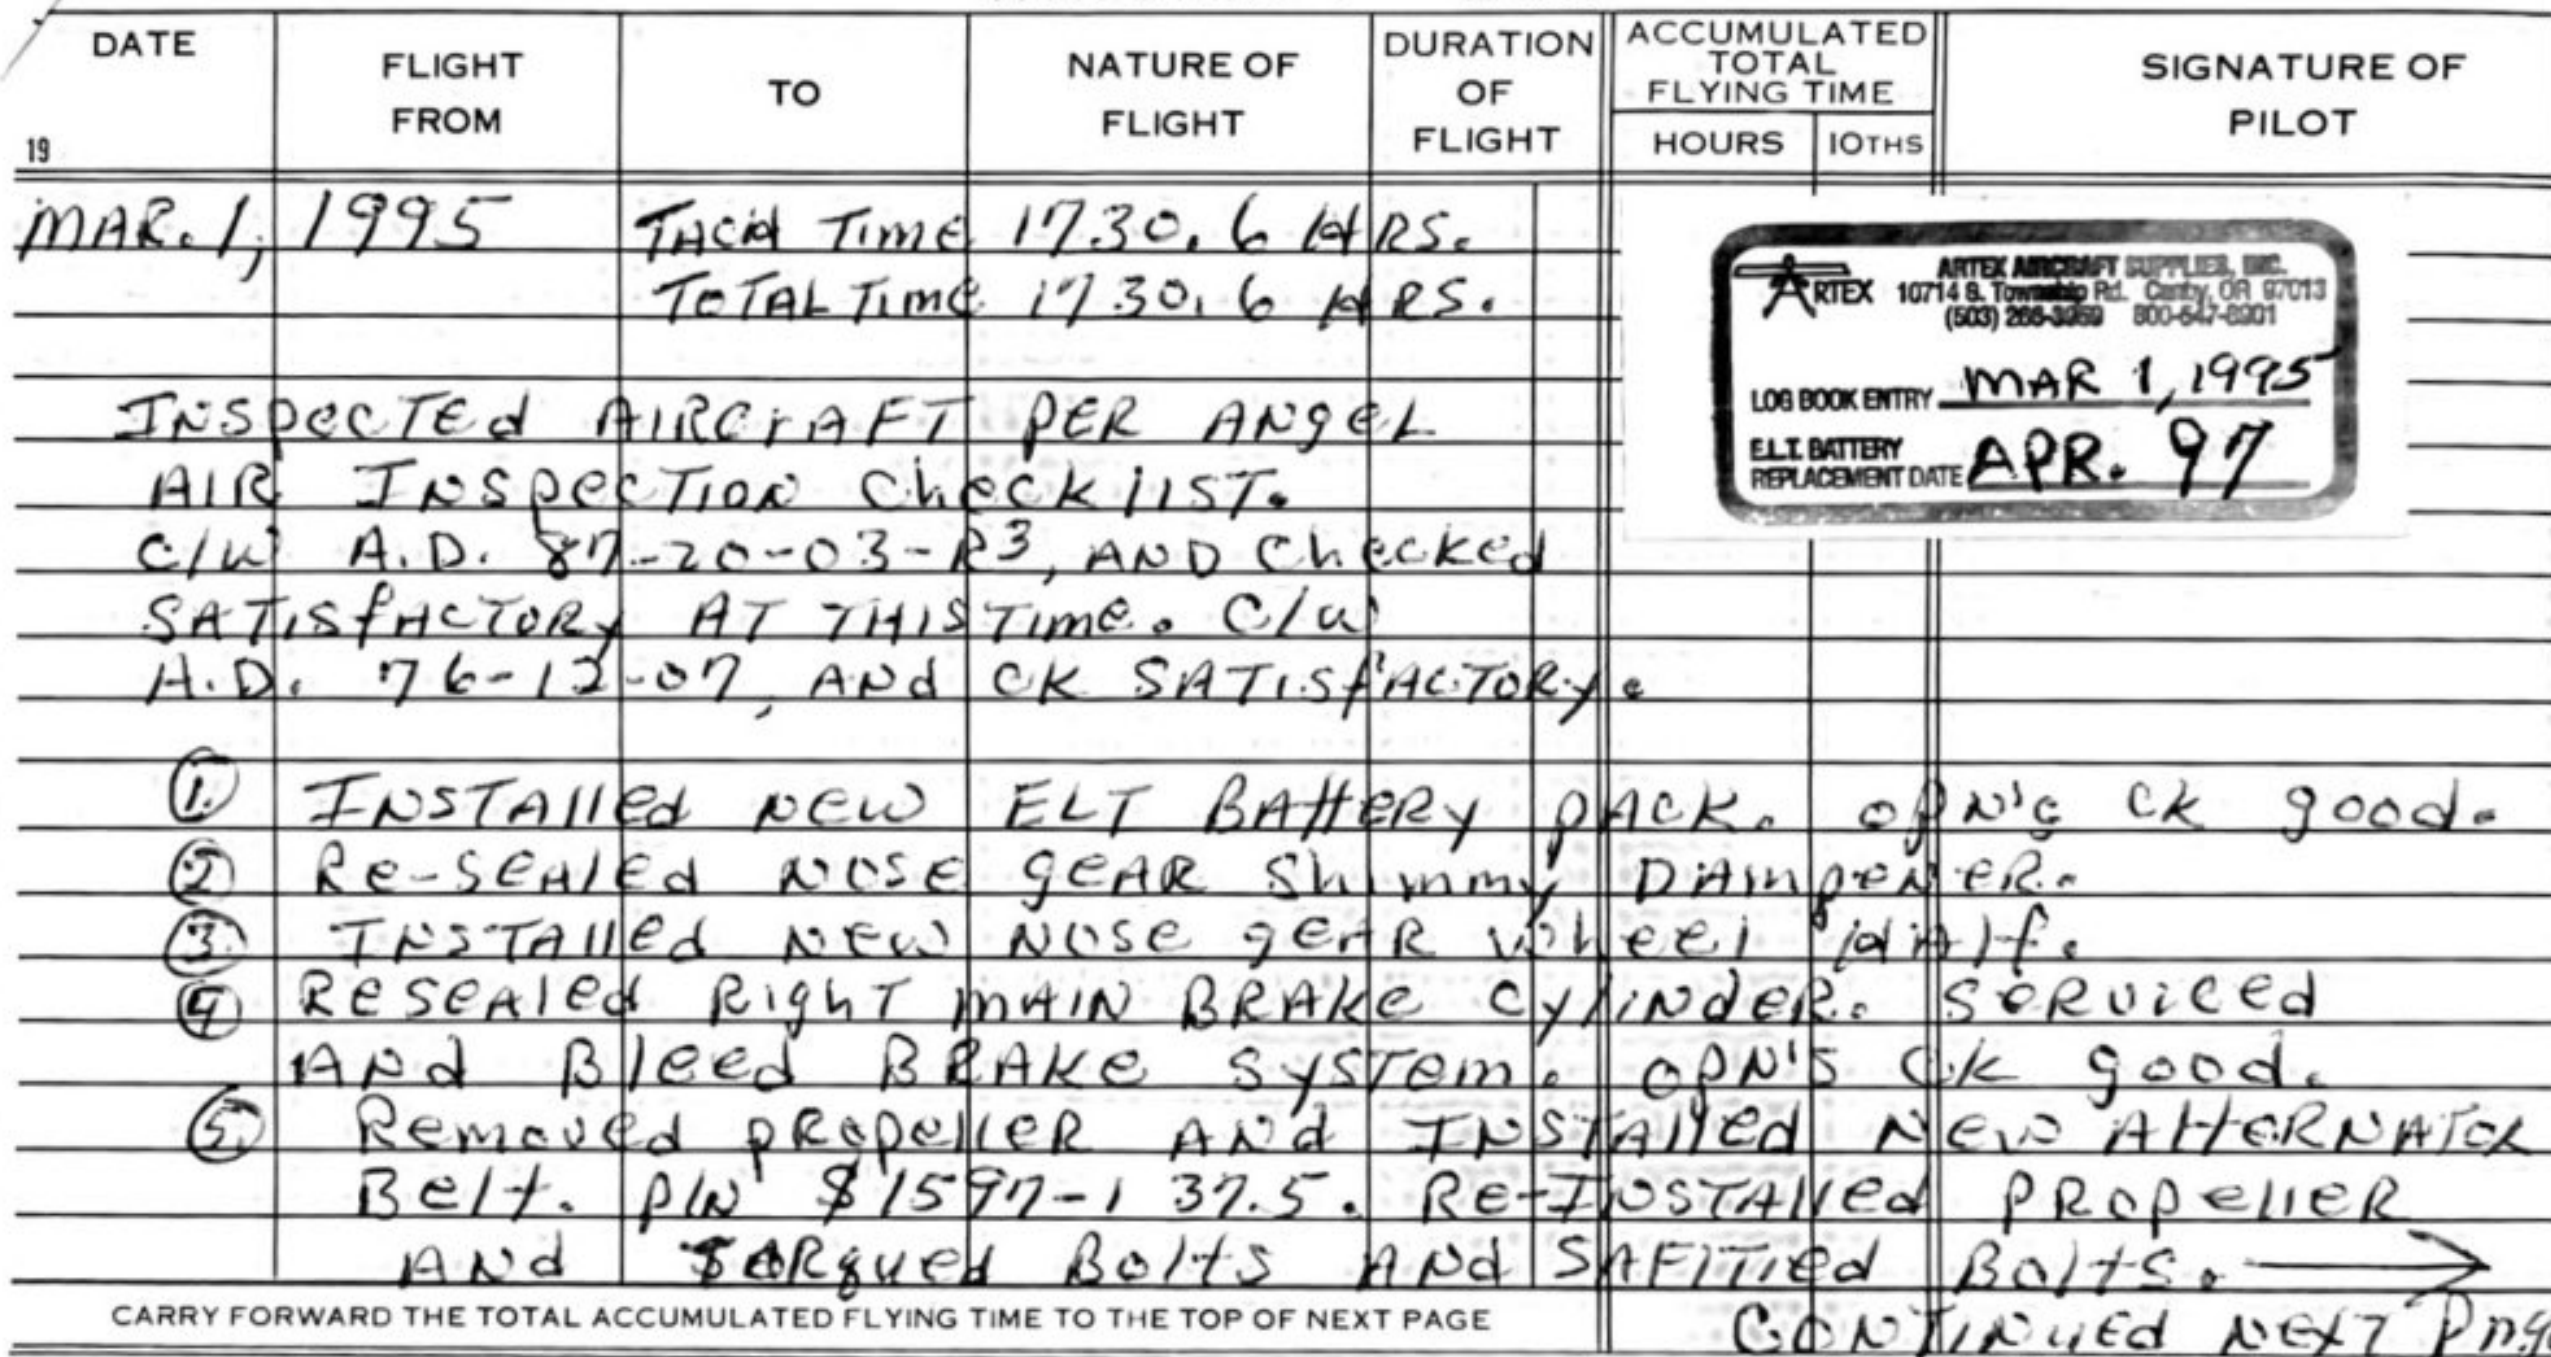 DATE
FLIGHT FROM
TO
NATURE OF FLIGHT
DURATION OF FLIGHT
ACCUMULATED TOTAL FLYING TIME
HOURS
10THS
SIGNATURE OF PILOT
19
MAR. 1, 1995 TACH TIME 1730.6 HRS.
TOTAL TIME 1730.6 HRS.
ARTEX AIRCRAFT SUPPLIES, INC.
ARTEX 10714 S. Township Rd. Canby, OR 97013
(503) 800-547-8901
LOG BOOK ENTRY MAR 1, 1995
E.L.T. BATTERY
REPLACEMENT DATE APR. 97
INSPECTED AIRCRAFT PER ANGEL
AIR INSPECTION CHECKLIST.
C/W A.D. 87-20-03-R3, AND CHECKED
SATISFACTORY AT THIS TIME. C/W
A.D. 76-12-07, AND CK SATISFACTORY.
① INSTALLED NEW ELT BATTERY PACK. OPN'S CK GOOD.
② RE-SEALED NOSE GEAR SHIMMY DAMPENER.
③ INSTALLED NEW NOSE GEAR WHEEL HALF.
④ RESEALED RIGHT MAIN BRAKE CYLINDER. SERVICED
AND BLEED BRAKE SYSTEM. OPN'S CK GOOD.
⑤ REMOVED PROPELLER AND INSTALLED NEW ALTERNATOR
BELT. P/N $1597-1 37.5. RE-INSTALLED PROPELLER
AND TORQUED BOLTS AND SAFITIED BOLTS. →
CARRY FORWARD THE TOTAL ACCUMULATED FLYING TIME TO THE TOP OF NEXT PAGE
CONTINUED NEXT PAGE